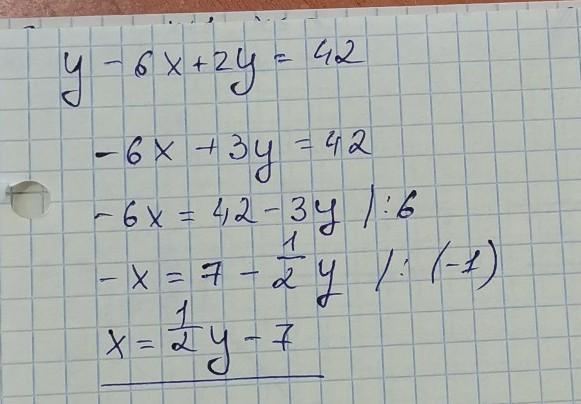 y - 6x + 2y = 42
-6x + 3y = 42
-6x = 42 - 3y /:6
-x = 7 - 1/2 y /: (-1)
x = 1/2 y - 7